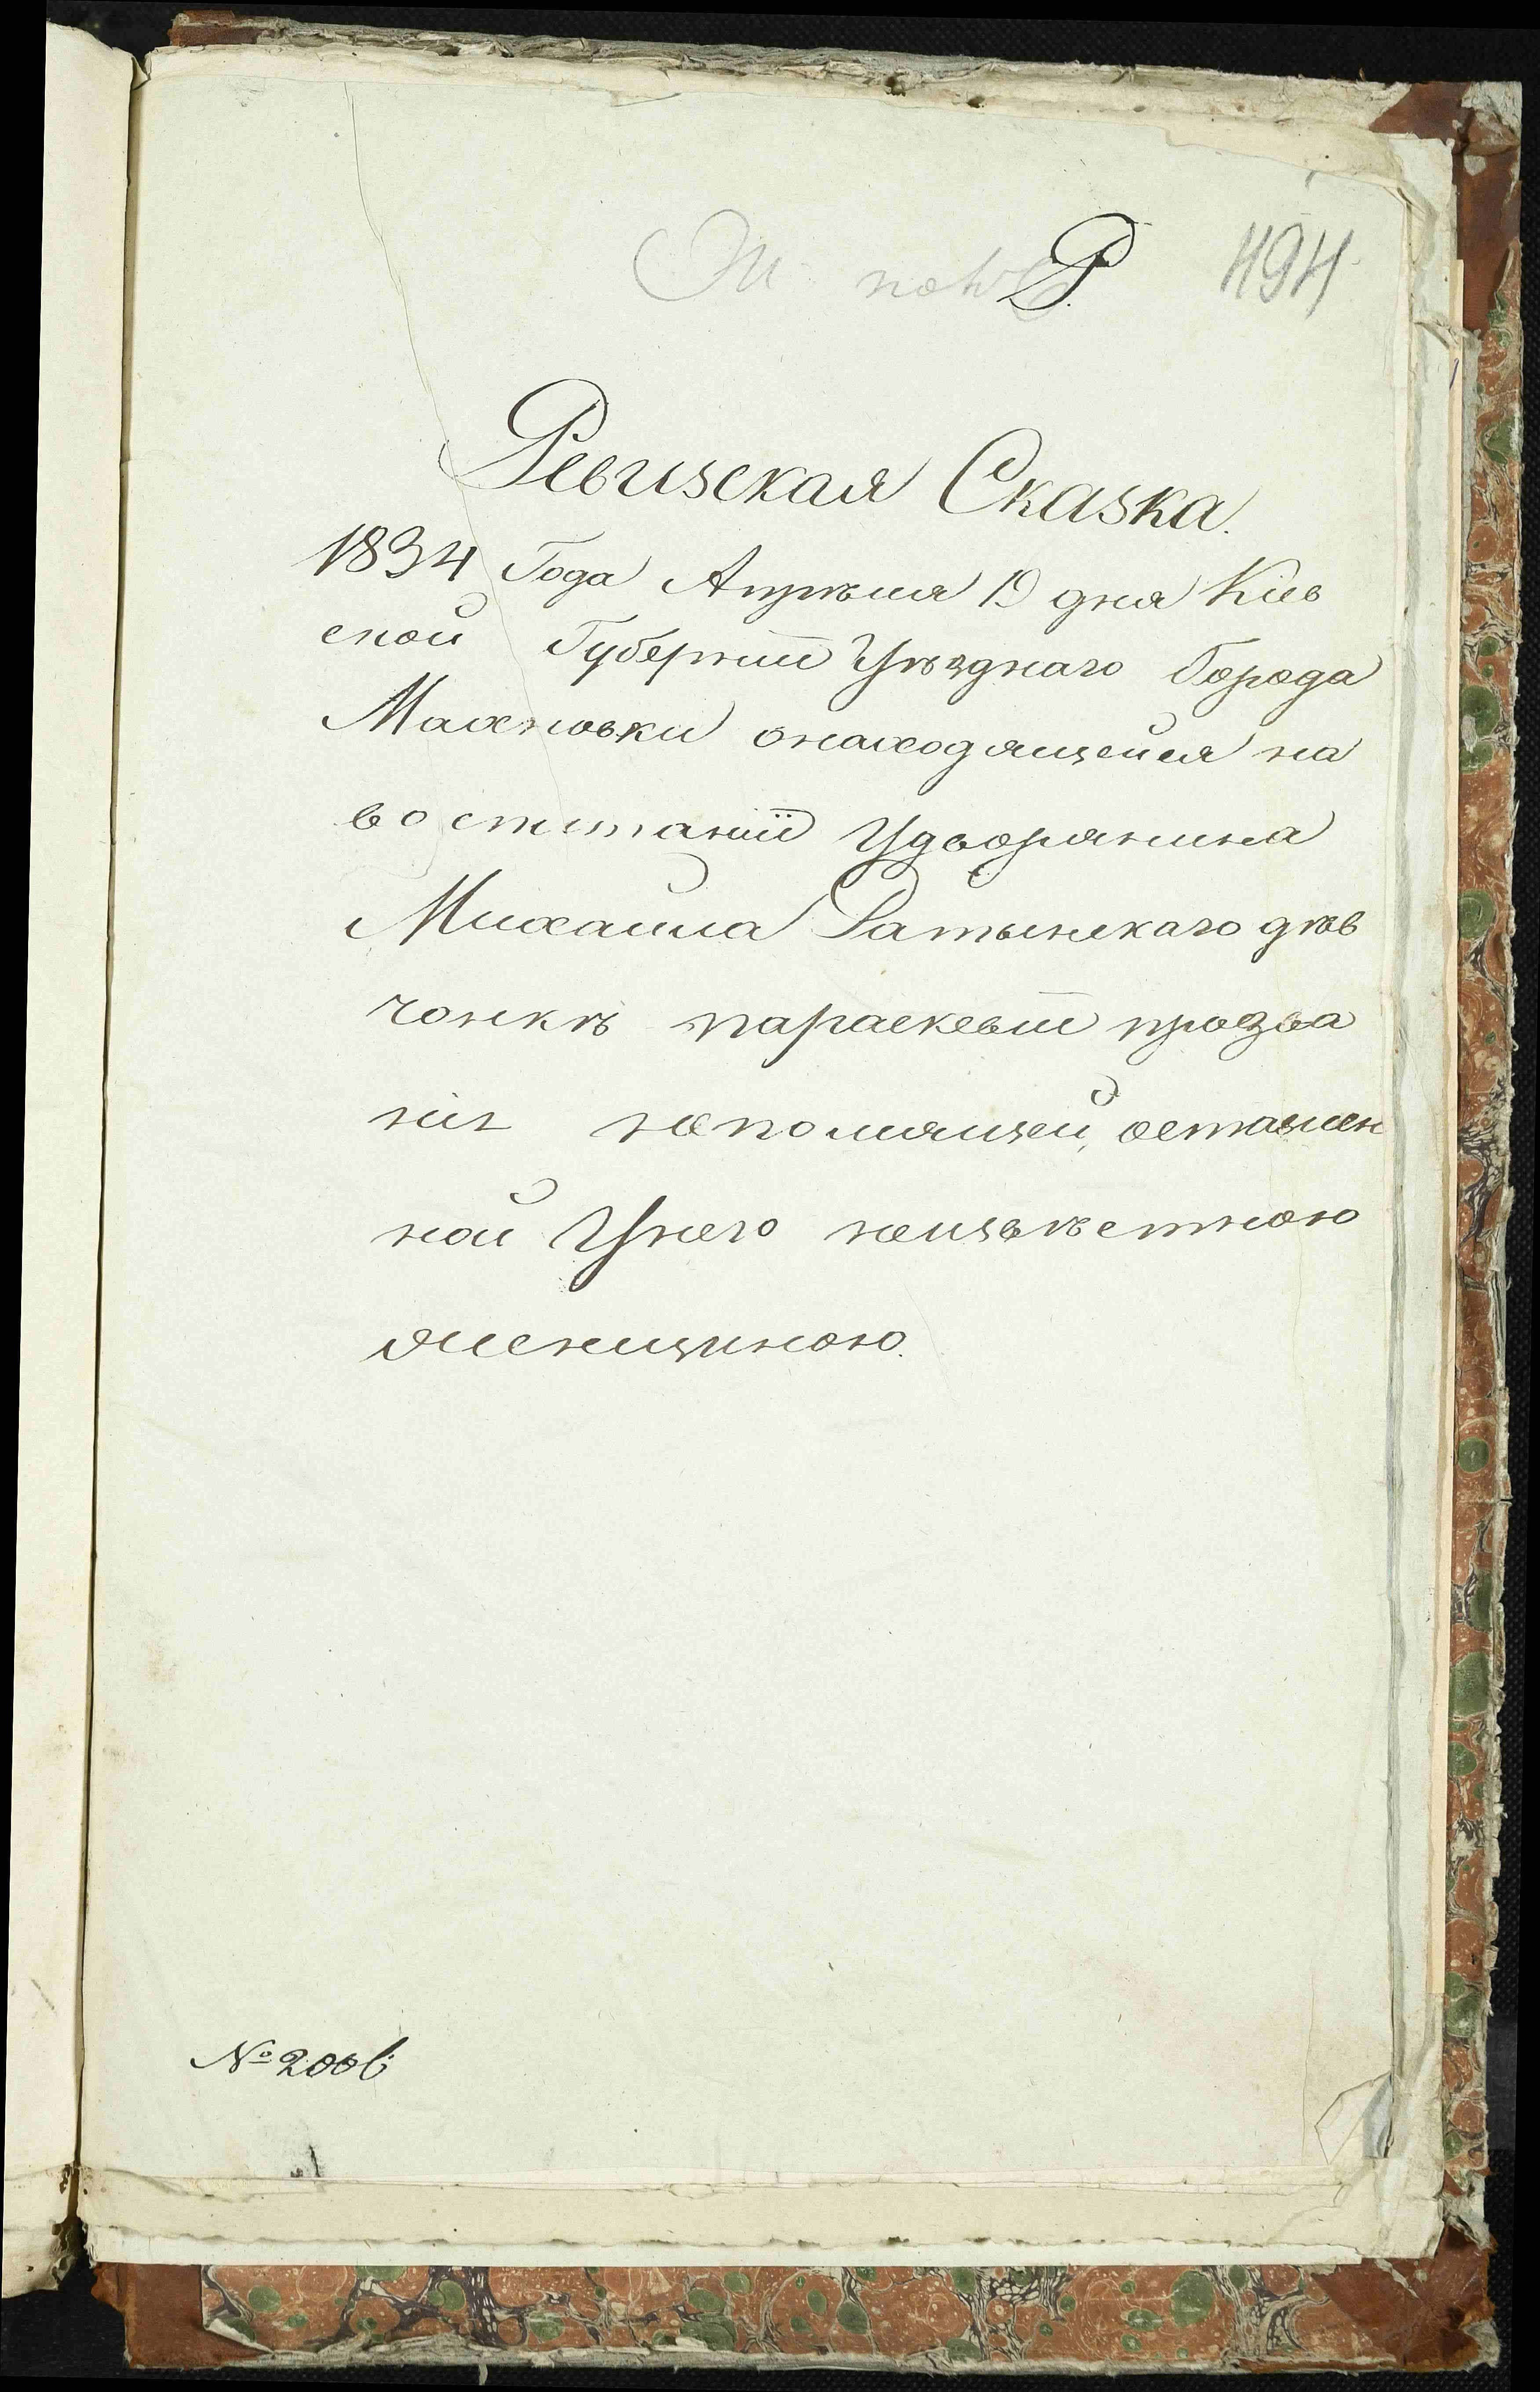 Р. 494
Ревизская Сказка.
1834 Года Апреля 19 дня Киев
ской Губернии Уѣзднаго Города
Махновки онаходящейся на
воспитанїи Удворянина
Михаила Ратынскаго дѣв
чонкѣ параскевiи прозва
нiя непомлящей, оставлен
ной Унего неизвѣстною
женщиною.
№ 2006